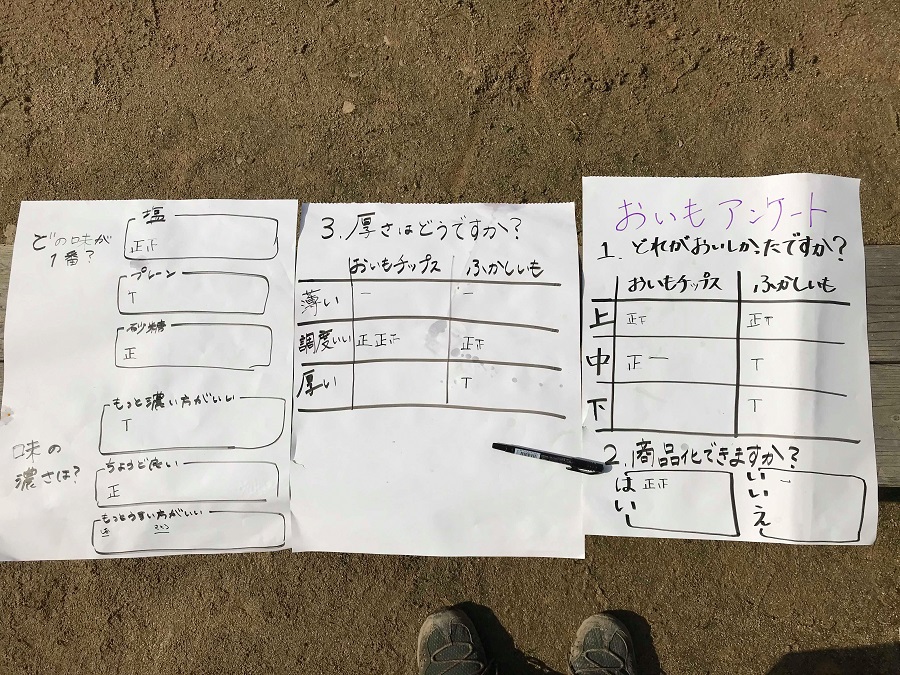 どの味が
1番?
塩
正正
プレーン
T
砂糖
正
味の
濃さは?
もっと濃い方がいい
T
ちょうど良い
正
もっとうすい方がいい
3. 厚さはどうですか?
おいもチップス ふかしいも
薄い 一 一
調度いい 正 正
厚い T
おいもアンケート
1. どれがおいしかったですか?
おいもチップス ふかしいも
上 正 正
中 正一 T
下 T
2. 商品化できますか?
はい 正
いいえ 一